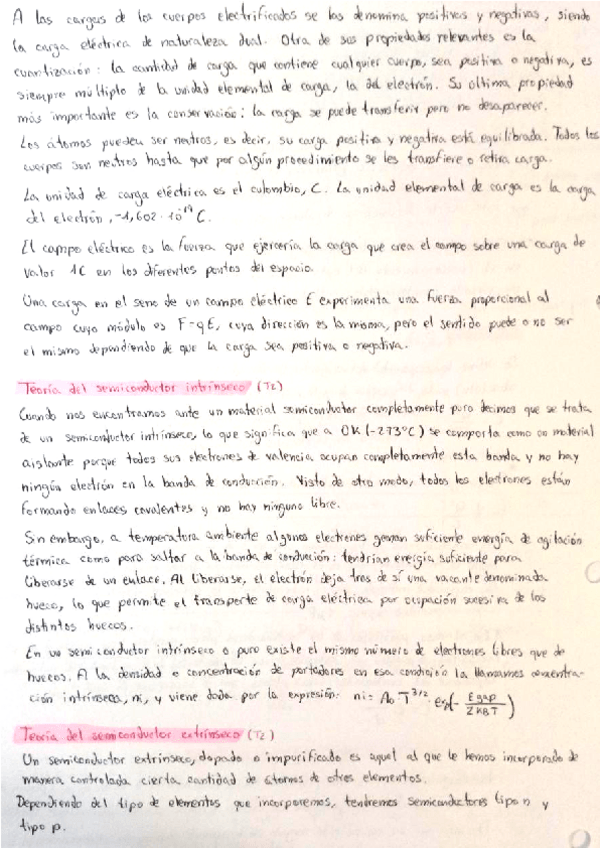 A las cargas de los cuerpos electrificados se las denomina positivas y negativas, siendo
la carga eléctrica de naturaleza dual. Otra de sus propiedades relevantes es la
cuantización: la cantidad de carga que contiene cualquier cuerpo, sea positiva o negativa, es
siempre múltiplo de la unidad elemental de carga, la del electrón. Su última propiedad
más importante es la conservación: la carga se puede transferir pero no desaparecer.
Los átomos pueden ser neutros, es decir, su carga positiva y negativa está equilibrada. Todos los
cuerpos son neutros hasta que por algún procedimiento se les transfiere o retira carga.
La unidad de carga eléctrica es el culombio, C. La unidad elemental de carga es la carga
del electrón, -1,602 · 10⁻¹⁹ C.
El campo eléctrico es la fuerza que ejercería la carga que crea el campo sobre una carga de
valor 1C en los diferentes puntos del espacio.
Una carga en el seno de un campo eléctrico E experimenta una fuerza proporcional al
campo cuyo módulo es F=qE, cuya dirección es la misma, pero el sentido puede o no ser
el mismo dependiendo de que la carga sea positiva o negativa.
Teoría del semiconductor intrínseco (T2)
Cuando nos encontramos ante un material semiconductor completamente puro decimos que se trata
de un semiconductor intrínseco, lo que significa que a 0K (-273ºC) se comporta como un material
aislante porque todos sus electrones de valencia ocupan completamente esta banda y no hay
ningún electrón en la banda de conducción. Visto de otro modo, todos los electrones están
formando enlaces covalentes y no hay ninguno libre.
Sin embargo, a temperatura ambiente algunos electrones ganan suficiente energía de agitación
térmica como para saltar a la banda de conducción: tendrían energía suficiente para
liberarse de un enlace. Al liberarse, el electrón deja tras de sí una vacante denominada
hueco, lo que permite el transporte de carga eléctrica por ocupación sucesiva de los
distintos huecos.
En un semiconductor intrínseco o puro existe el mismo número de electrones libres que de
huecos. A la densidad o concentración de portadores en esa condición la llamamos concentra-
ción intrínseca, ni, y viene dada por la expresión: ni = A₀ T^3/2 · exp(- Egap / 2KBT)
Teoría del semiconductor extrínseco (T2)
Un semiconductor extrínseco, dopado o impurificado es aquel al que le hemos incorporado de
manera controlada cierta cantidad de átomos de otros elementos.
Dependiendo del tipo de elementos que incorporemos, tendremos semiconductores tipo n y
tipo p.